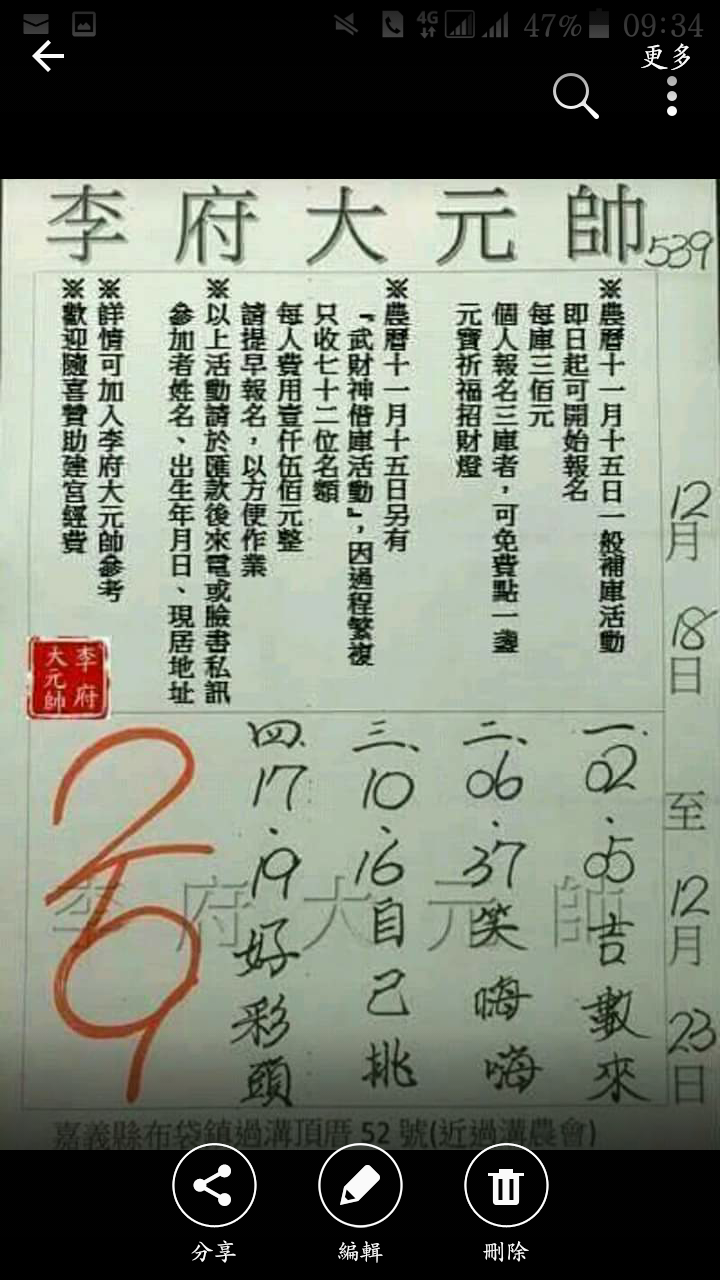 4G 47% 09:34
更多
李府大元帥
539
※農曆十一月十五日一般補庫活動
即日起可開始報名
每庫三佰元
個人報名三庫者，可免費點一盞
元寶祈福招財燈
※農曆十一月十五日另有
『武財神借庫活動』，因過程繁複
只收七十二位名額
每人費用壹仟伍佰元整
請提早報名，以方便作業
※以上活動請於匯款後來電或臉書私訊
參加者姓名、出生年月日、現居地址
※詳情可加入李府大元帥參考
※歡迎隨喜贊助建宮經費
李府
大元帥
12月18日至12月23日
一.02.05吉數來
二、06.37笑嗨嗨
三、10、16自己挑
四.17.19好彩頭
李府大元帥
嘉義縣布袋鎮過溝頂厝52號(近過溝農會)
分享
編輯
刪除